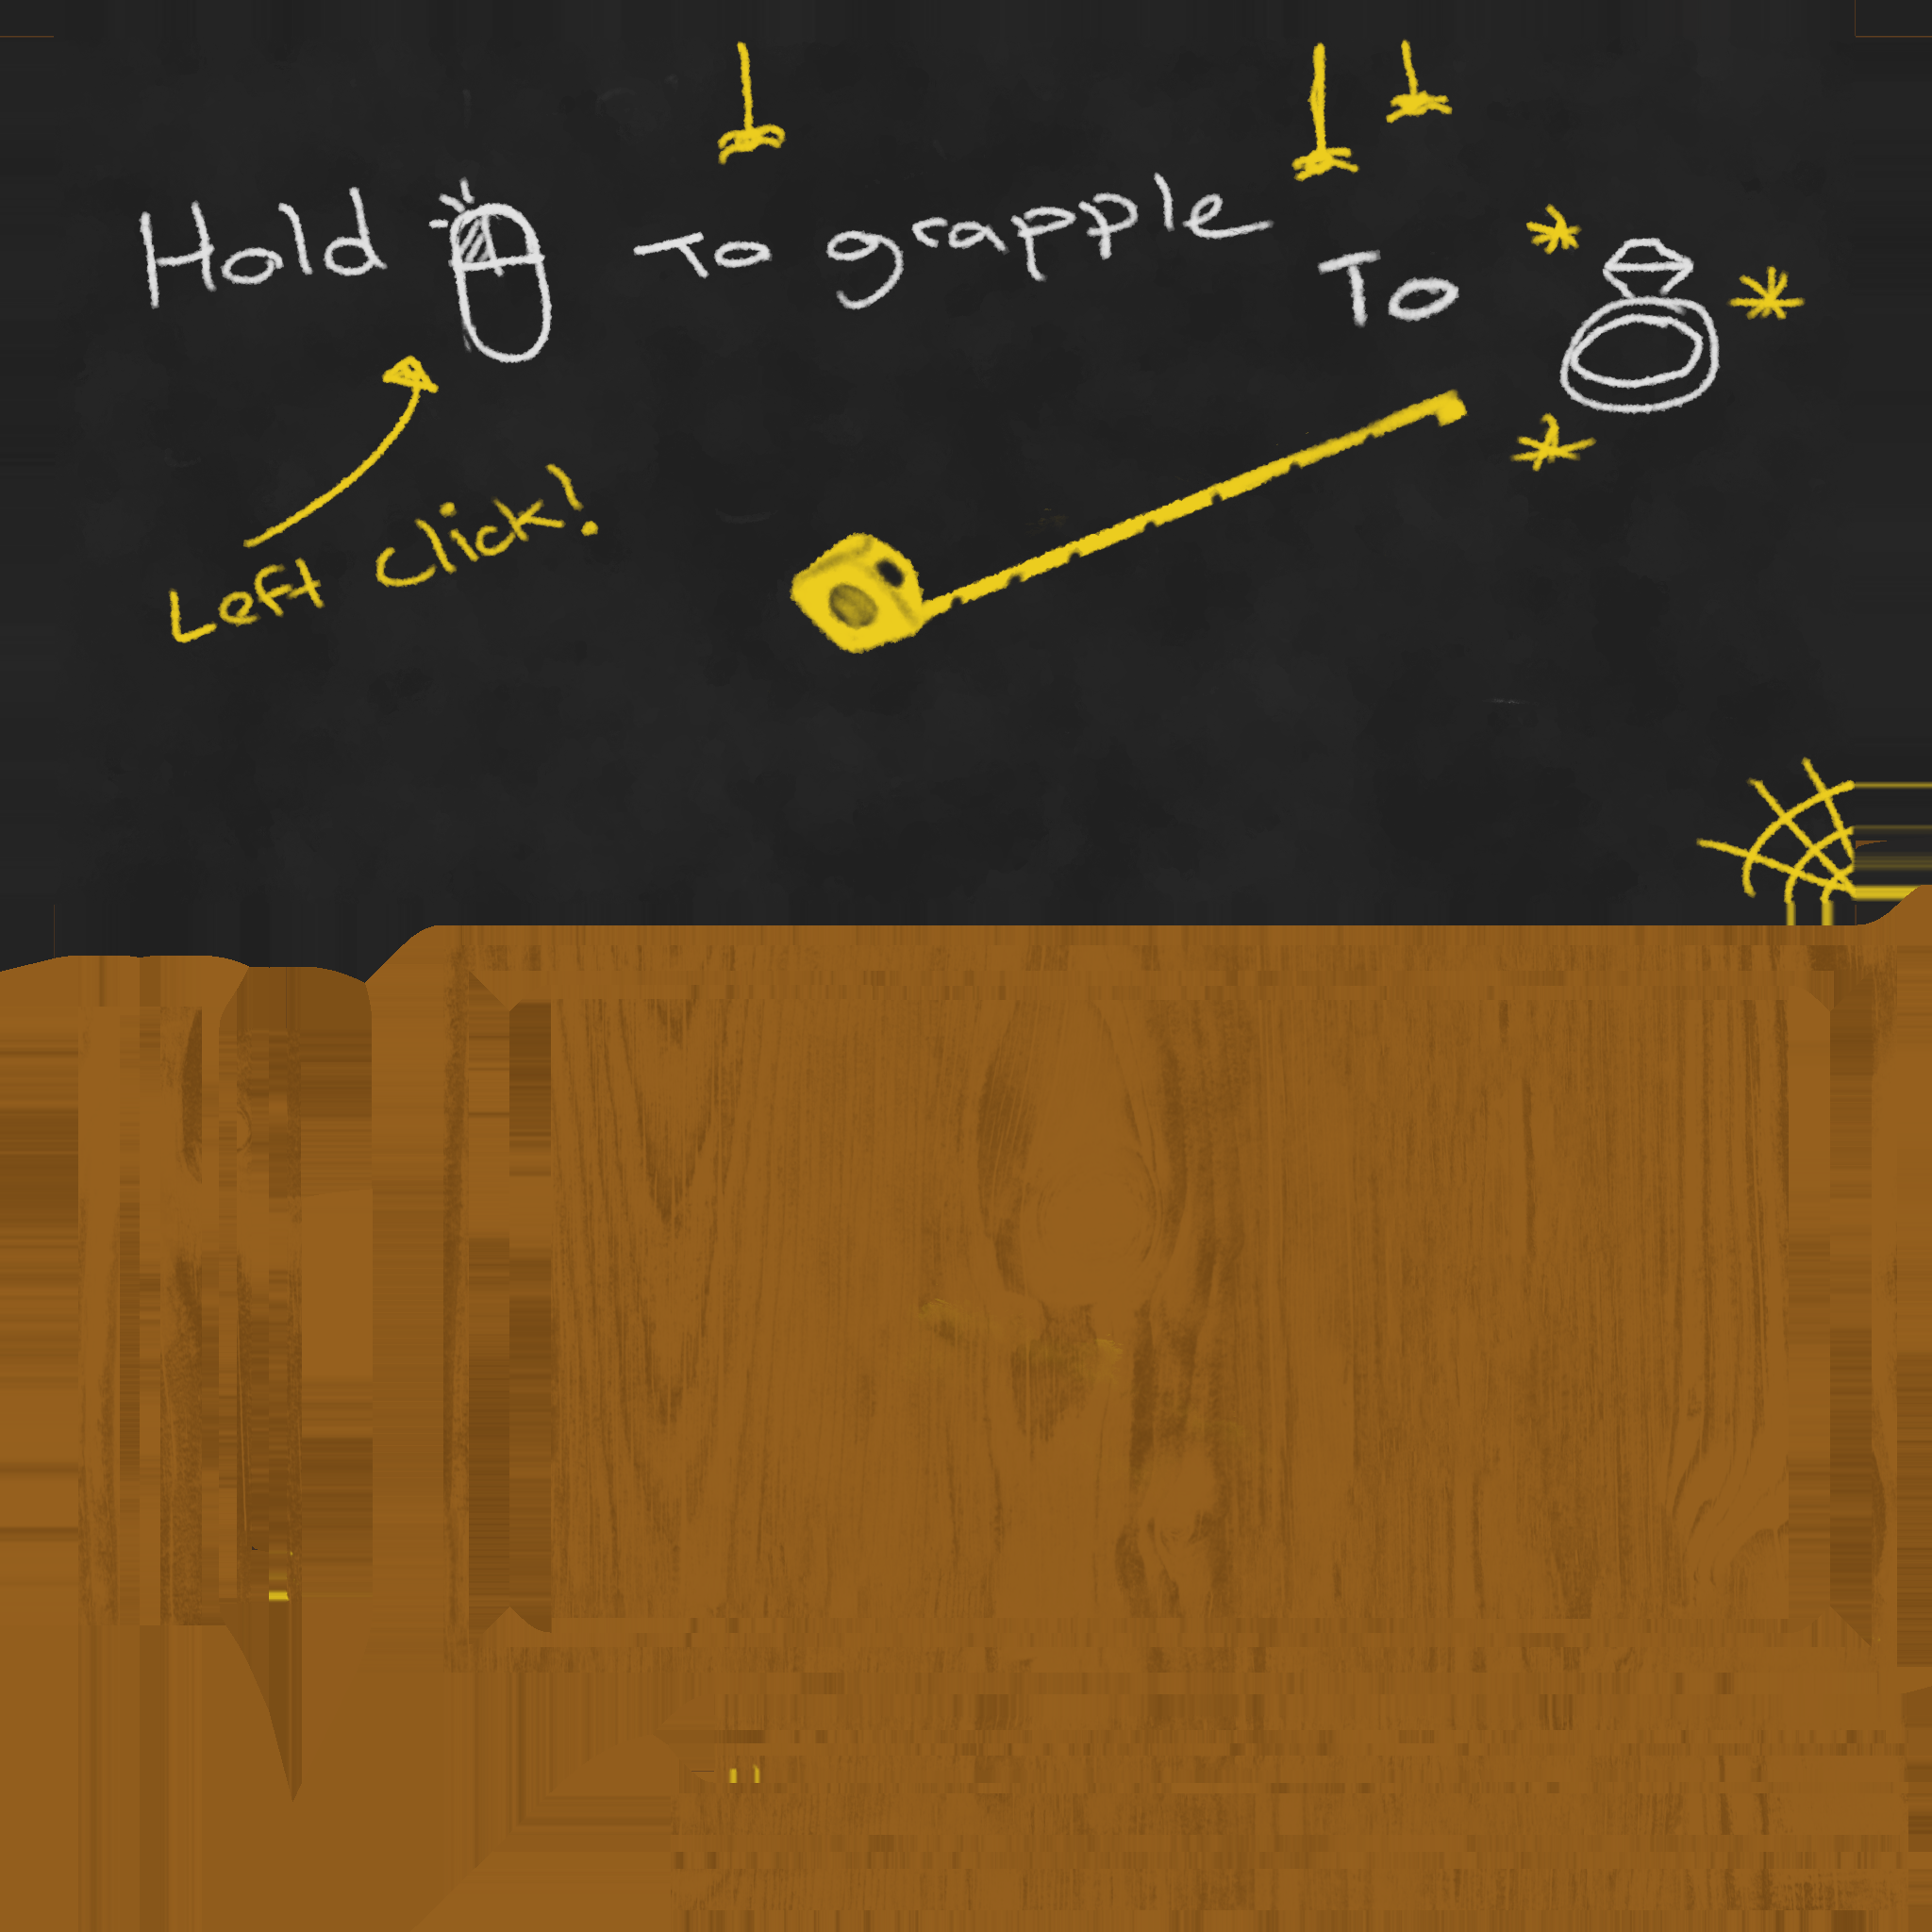 Hold To grapple To
Left Click!